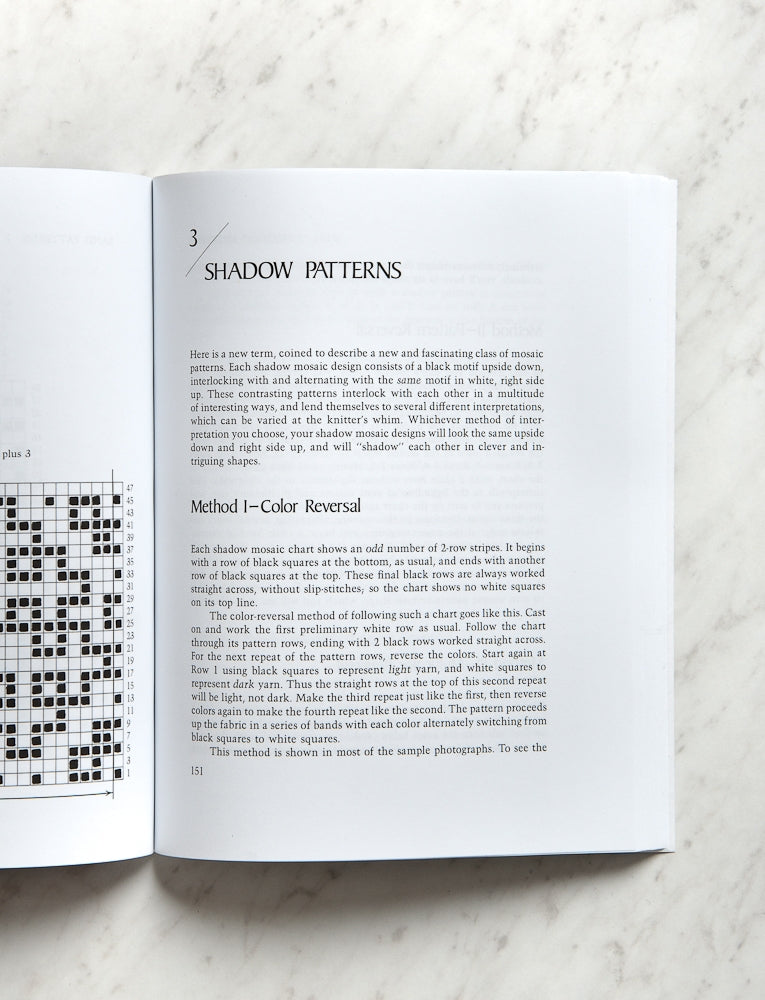 plus 3
47
45
43
41
39
37
35
33
31
29
27
25
23
21
19
17
15
13
11
9
7
5
3
1
3
SHADOW PATTERNS
Here is a new term, coined to describe a new and fascinating class of mosaic
patterns. Each shadow mosaic design consists of a black motif upside down,
interlocking with and alternating with the same motif in white, right side
up. These contrasting patterns interlock with each other in a multitude
of interesting ways, and lend themselves to several different interpretations,
which can be varied at the knitter's whim. Whichever method of inter-
pretation you choose, your shadow mosaic designs will look the same upside
down and right side up, and will "shadow" each other in clever and in-
triguing shapes.
Method I—Color Reversal
Each shadow mosaic chart shows an odd number of 2-row stripes. It begins
with a row of black squares at the bottom, as usual, and ends with another
row of black squares at the top. These final black rows are always worked
straight across, without slip-stitches; so the chart shows no white squares
on its top line.
The color-reversal method of following such a chart goes like this. Cast
on and work the first preliminary white row as usual. Follow the chart
through its pattern rows, ending with 2 black rows worked straight across.
For the next repeat of the pattern rows, reverse the colors. Start again at
Row 1 using black squares to represent light yarn, and white squares to
represent dark yarn. Thus the straight rows at the top of this second repeat
will be light, not dark. Make the third repeat just like the first, then reverse
colors again to make the fourth repeat like the second. The pattern proceeds
up the fabric in a series of bands with each color alternately switching from
black squares to white squares.
This method is shown in most of the sample photographs. To see the
151